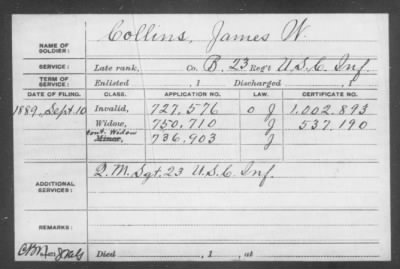 Collins, James W.
NAME OF SOLDIER:
SERVICE: Late rank, Co. B, 23 Reg't U.S.C. Inf.
TERM OF SERVICE: Enlisted , 1 Discharged , 1
DATE OF FILING. CLASS. APPLICATION NO. LAW. CERTIFICATE NO.
1889, Sept 10 Invalid, 727,576 J 1,002,893
Widow, 750,710 J 537,190
Cont. Widow
Minor, 736,903 J
ADDITIONAL SERVICES: Q. M. Sgt. 23 U.S.C. Inf.
REMARKS:
Died , 1 , at